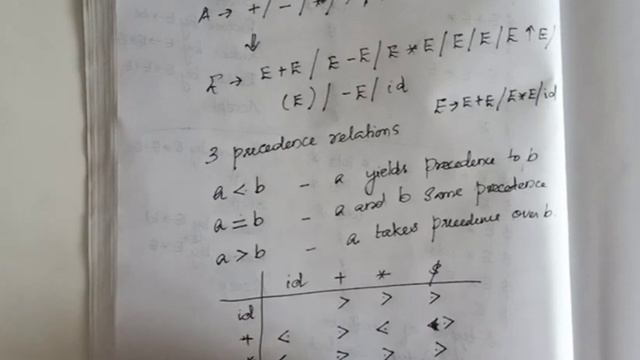 A → + / - / * /
↓
E → E+E / E-E / E*E / E/E / E↑E/
(E) / -E / id
E→E+E/E*E/id
3 precedence relations
a < b - a yields precedence to b
a ≐ b - a and b same precedence
a > b - a takes precedence over b.
id + * $
id > > ⋗
+ ⋖ > ⋖ ⋗
* ⋖ > > ⋗